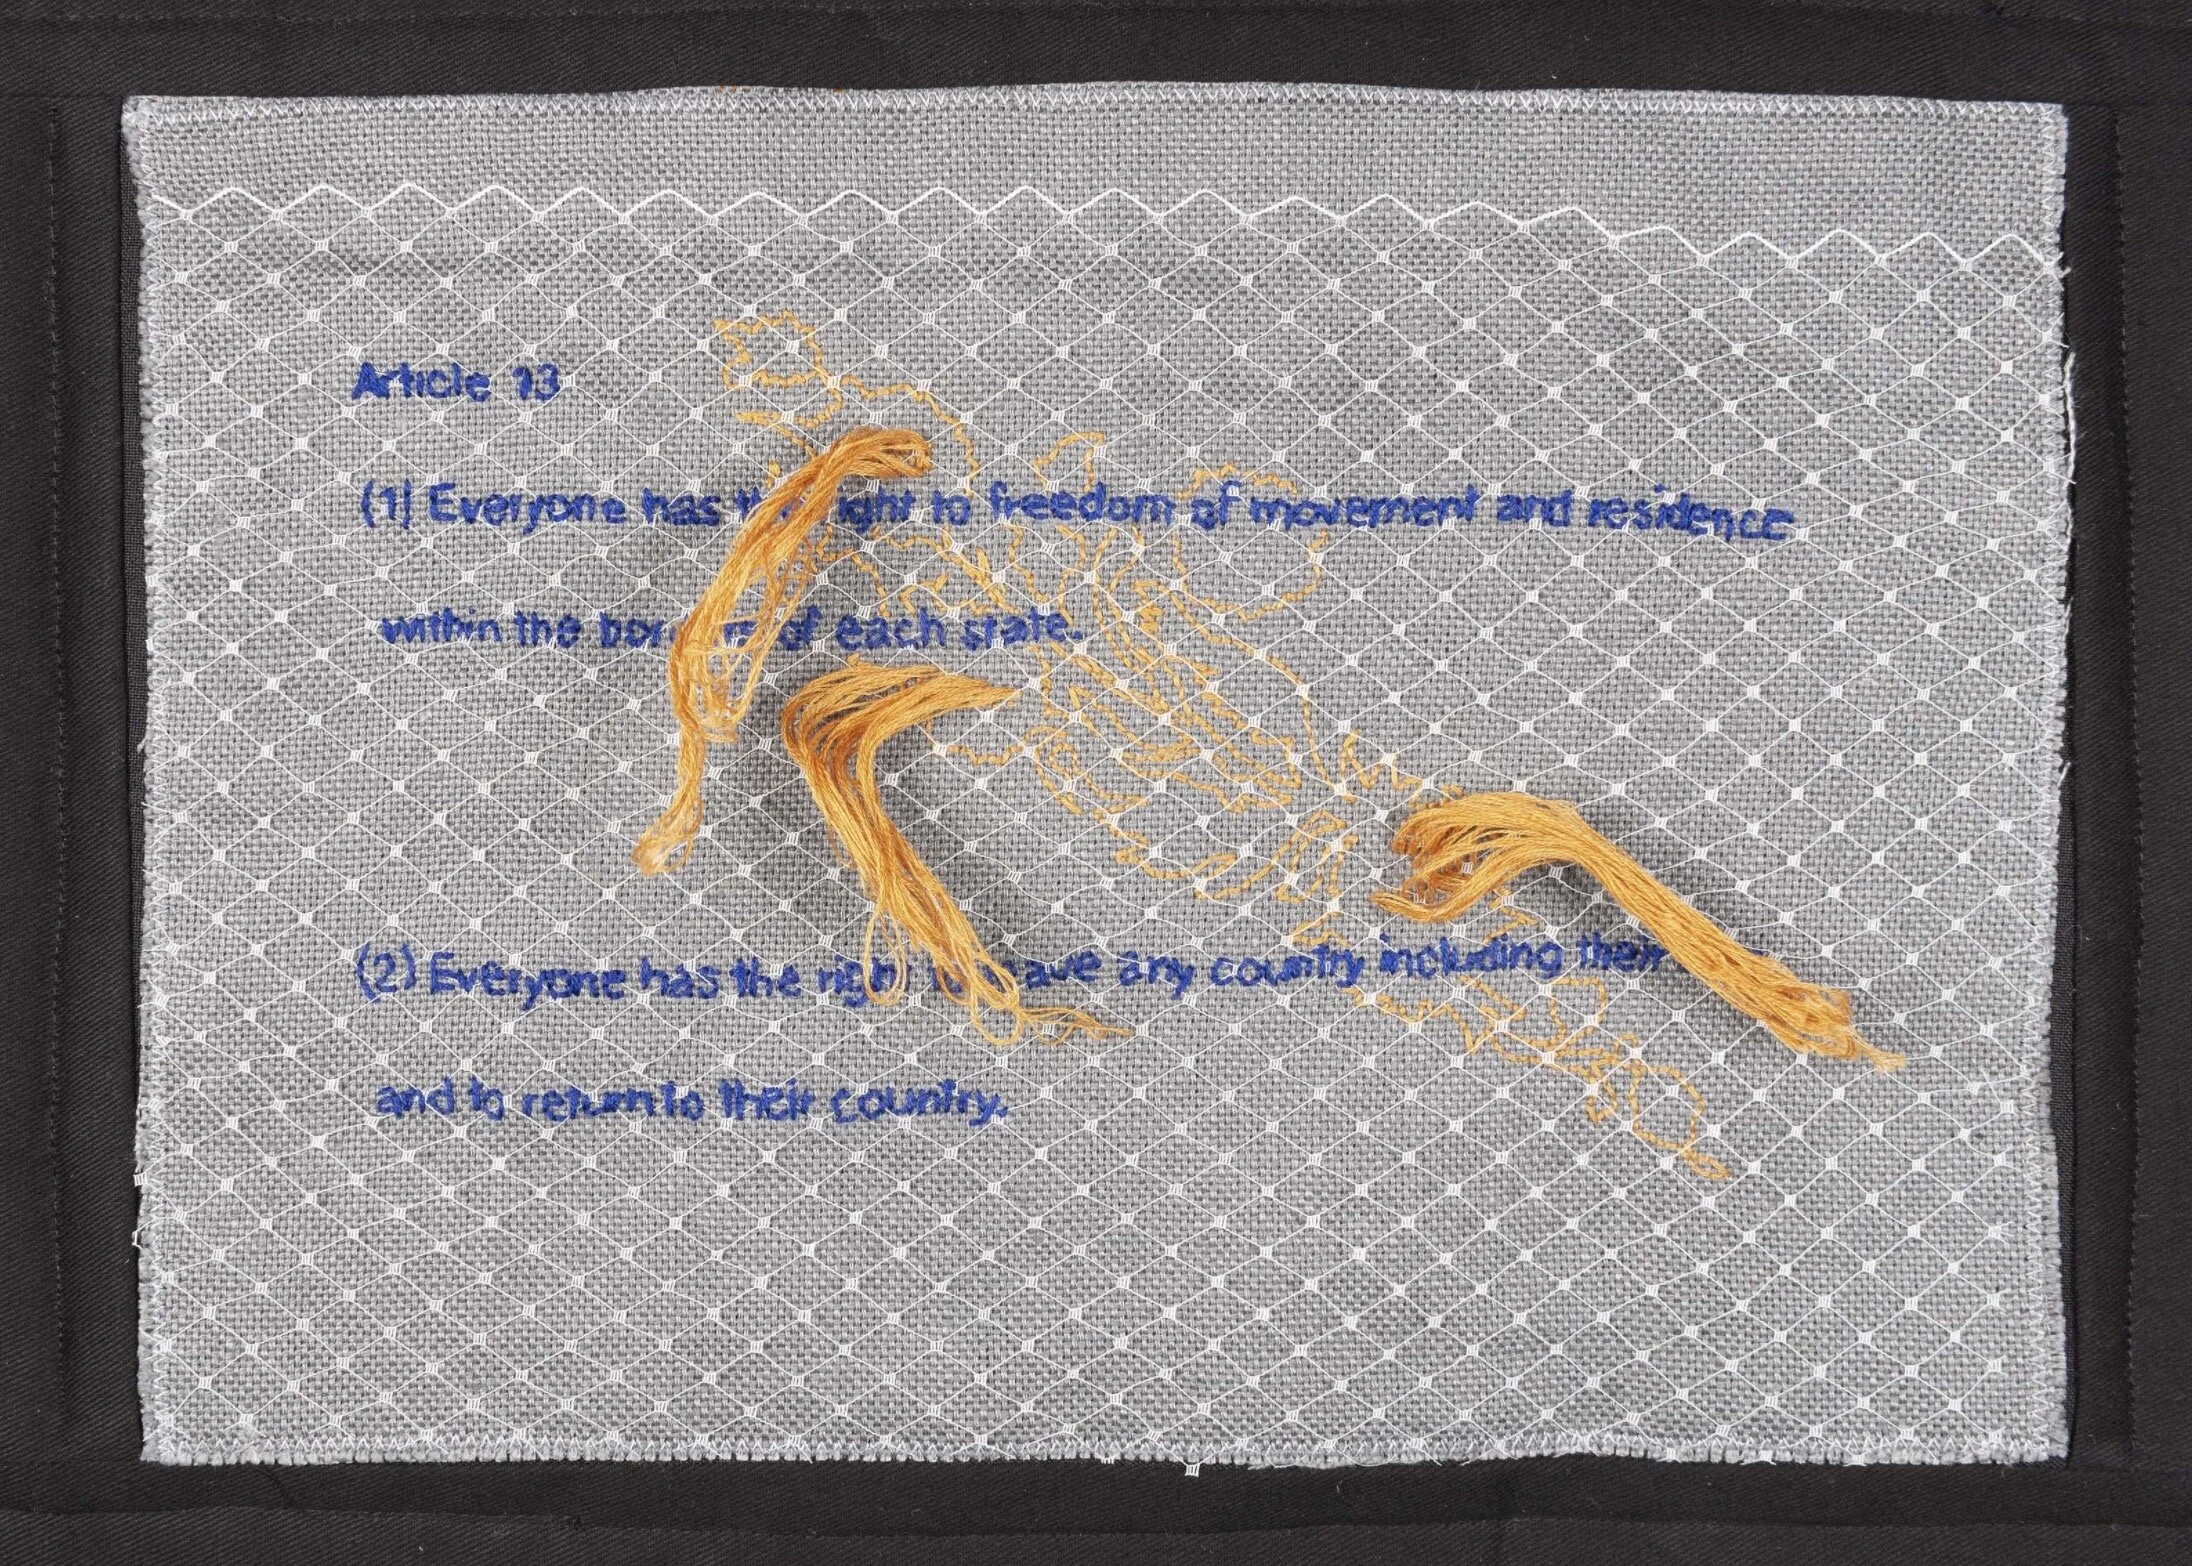 Article 13
(1) Everyone has the right to freedom of movement and residence
within the borders of each state.
(2) Everyone has the right to leave any country including their
and to return to their country.